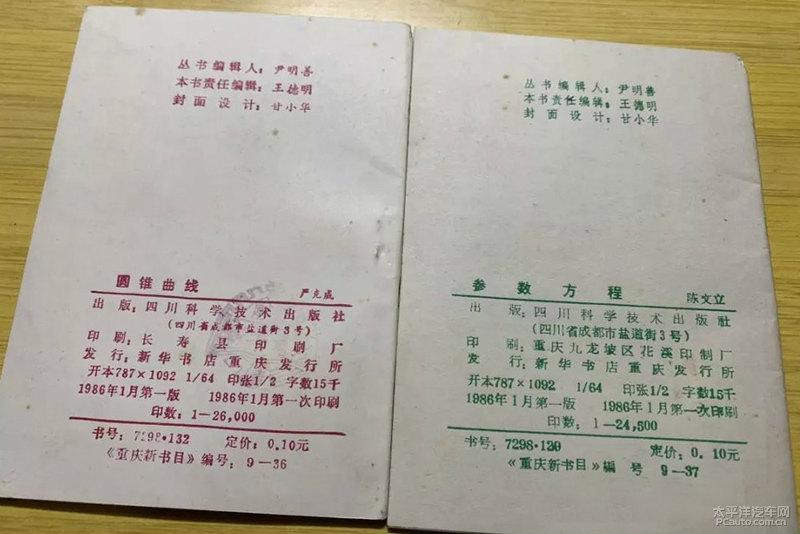 丛书编辑人：尹明善
本书责任编辑：王德明
封面设计：甘小华
圆锥曲线 严克成
出版：四川科学技术出版社
（四川省成都市盐道街3号）
印刷：长寿县印刷厂
发行：新华书店重庆发行所
开本787×1092 1/64 印张1/2 字数15千
1986年1月第一版 1986年1月第一次印刷
印数：1—26,000
书号：7298·132 定价：0.10元
《重庆新书目》编号：9—36
丛书编辑人：尹明善
本书责任编辑：王德明
封面设计：甘小华
参数方程 陈文立
出版：四川科学技术出版社
（四川省成都市盐道街3号）
印刷：重庆九龙坡区花溪印制厂
发行：新华书店重庆发行所
开本787×1092 1/64 印张1/2 字数15千
1986年1月第一版 1986年1月第一次印刷
印数：1—24,500
书号：7298·120 定价：0.10元
《重庆新书目》编号 9—37
太平洋汽车网
PCauto.com.cn